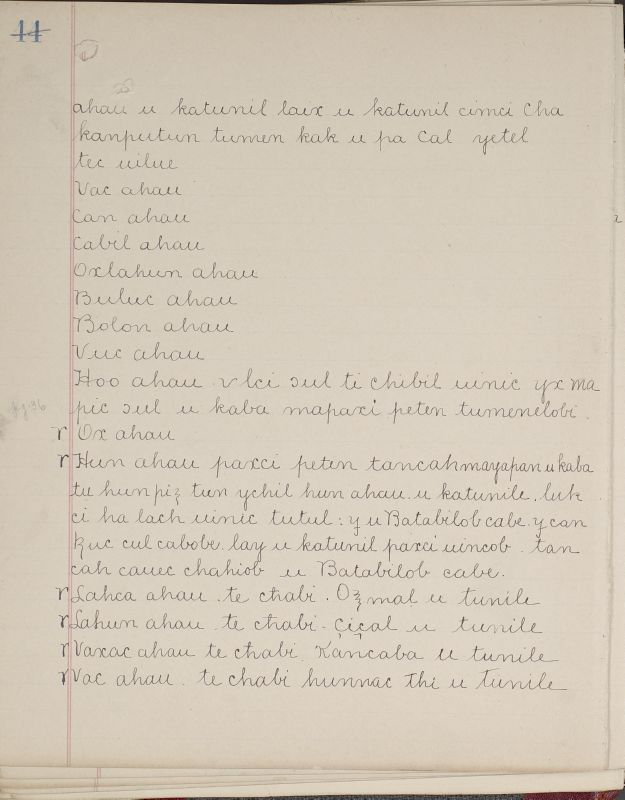 44
ahau u katunil laix u katunil cimci Cha
kanputun tumen kak u pa Cal yetel
tec uilue
Vac ahau
Can ahau
Cabil ahau
Oxlahun ahau
Buluc ahau
Bolon ahau
Vuc ahau
Hoo ahau vlci ɔul ti chibil uinic yx ma
pic ɔul u kaba mapaxi peten tumenelobi.
r Ox ahau
r Hun ahau paxci peten tancah mayapan u kaba
tu hun piꜩ tun ychil hun ahau u katunile. luk
ci ha lach uinic tutul: y u Batabilob cabe. y can
ꜩuc cul cabobe. lay u katunil paxci uincob. tan
cah cauec chahiob u Batabilob cabe.
r Lahca ahau. te chabi. Oꜩmal u tunile
r Lahun ahau. te chabi. çiçal u tunile
r Vaxac ahau te chabi. Kancaba u tunile
r Vac ahau. te chabi hunnac thi u tunile